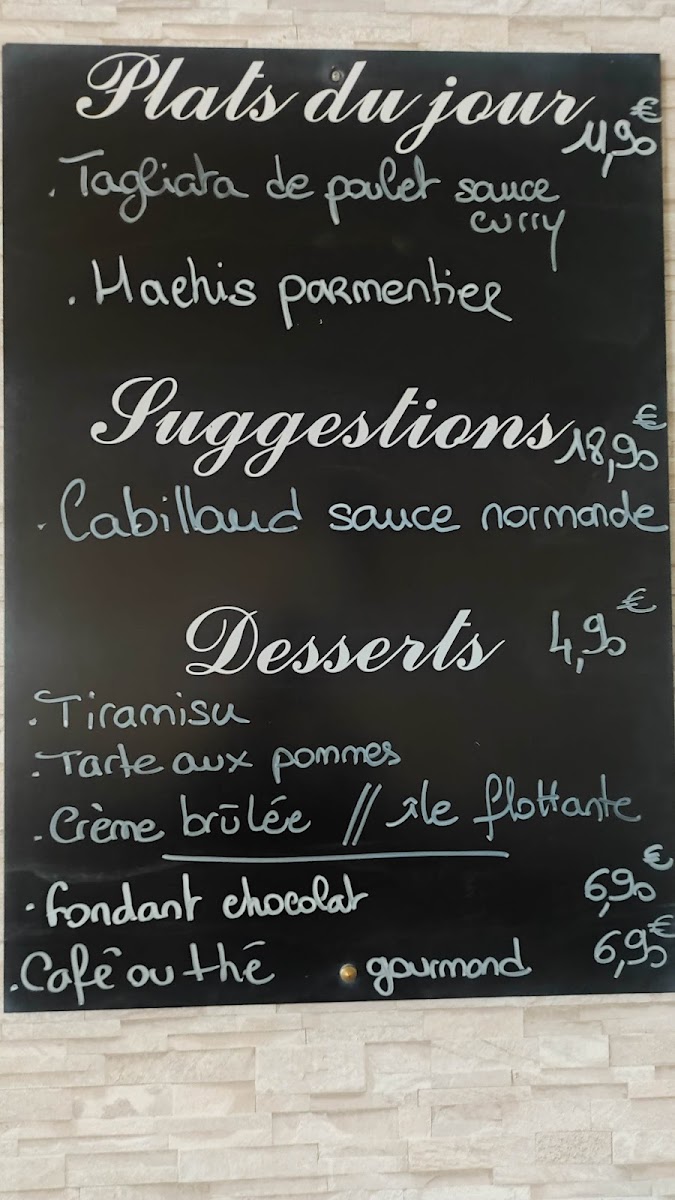 Plats du jour 11,90€
. Tagliata de poulet sauce
curry
. Hachis parmentier
Suggestions 18,90€
. Cabillaud sauce normande
Desserts 4,90€
. Tiramisu
. Tarte aux pommes
. Crème brûlée // île flottante
. fondant chocolat 6,90€
. Café ou thé gourmand 6,95€